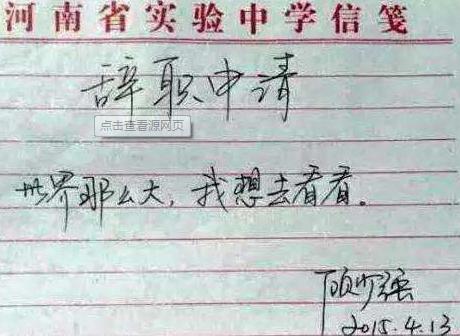 河南省实验中学信笺
辞职申请
点击查看源网页
世界那么大，我想去看看。
顾少强
2015.4.13